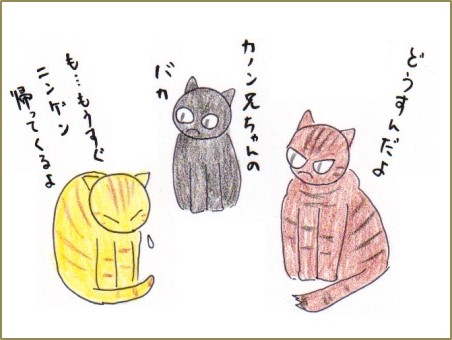 どうすんだよ
カノン兄ちゃんの
バカ
も…もうすぐ
ニンゲン
帰ってくるよ